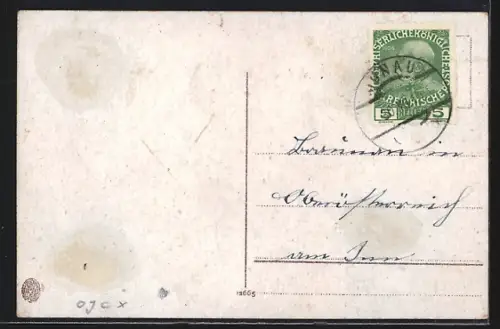 KAISERLICHE KÖNIGLICHE ÖSTER
REICHISCHE
5 HELLER 5
Braunau in
Oberösterreich
am Inn
12605
OJCX